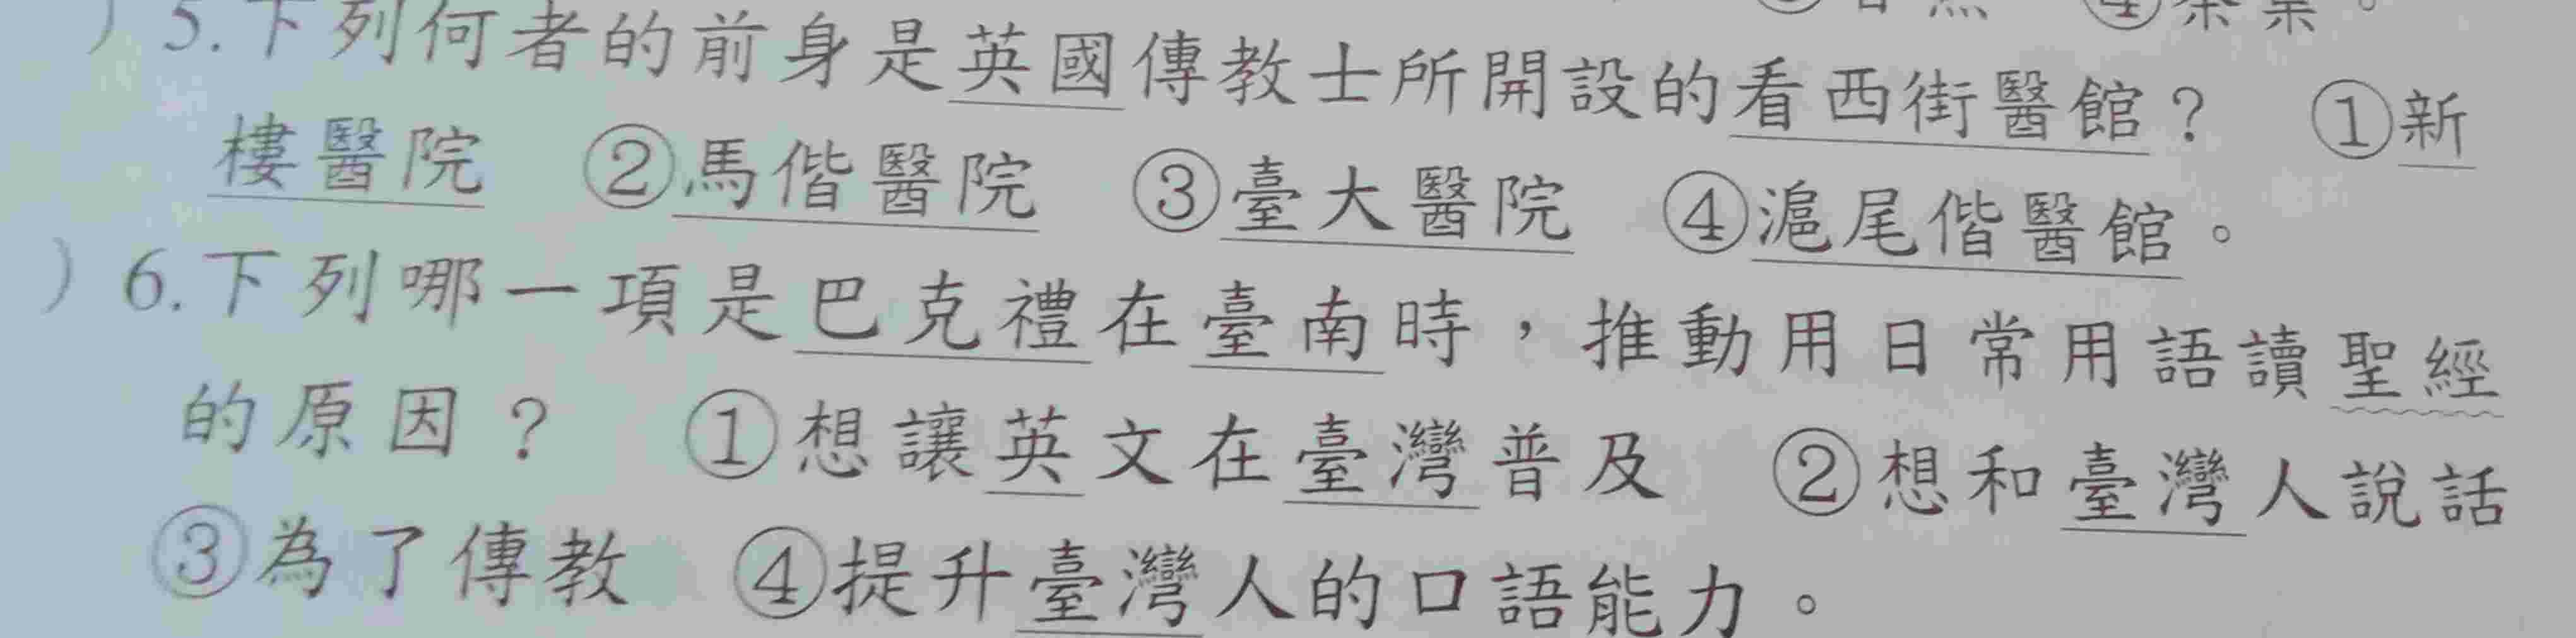 ④茶葉。
) 5.下列何者的前身是英國傳教士所開設的看西街醫館? ①新
樓醫院 ②馬偕醫院 ③臺大醫院 ④滬尾偕醫館。
) 6.下列哪一項是巴克禮在臺南時,推動用日常用語讀聖經
的原因? ①想讓英文在臺灣普及 ②想和臺灣人說話
③為了傳教 ④提升臺灣人的口語能力。